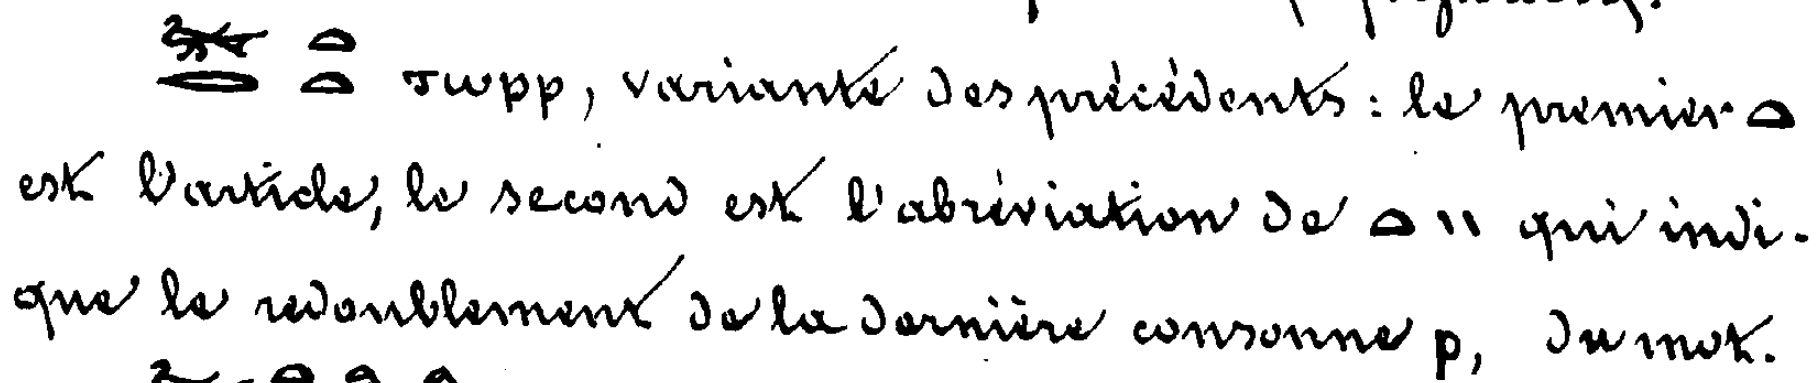 𓂋 𓏏𓏏 ⲧⲱⲣⲣ, variante des précédents: le premier 𓏏
est l'article, le second est l'abréviation de 𓏏 \\ qui indi-
que le redoublement de la dernière consonne ⲣ, du mot.